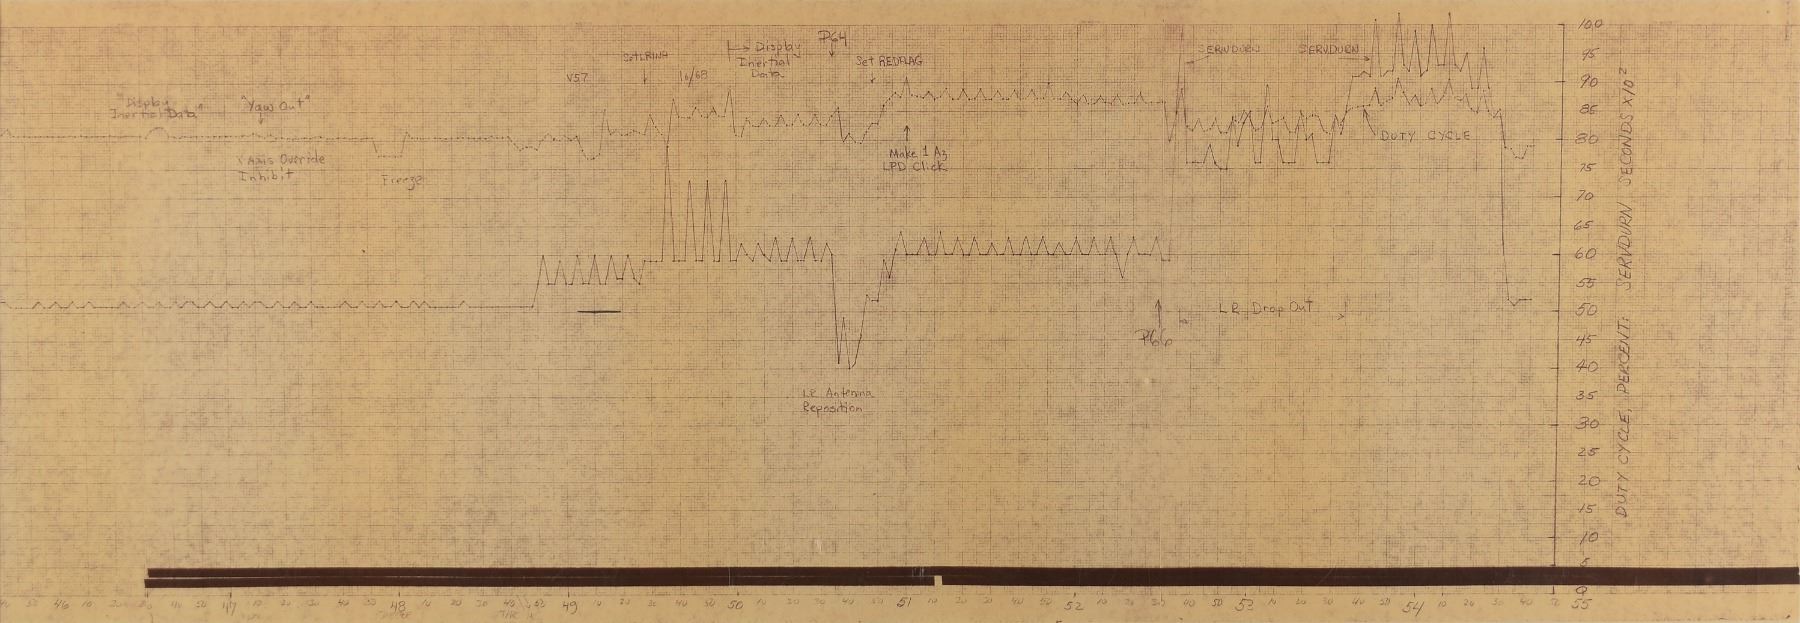 "Display
Inertial Data"
"Yaw Out"
X Axis Override
Inhibit
Freeze
V57
Set LRINH
16/68
Display
Inertial
Data
P64
Set REDFLAG
Make 1 Az
LPD Click
LR Antenna
Reposition
P66
LR Drop Out
SERVDURN
SERVDURN
DUTY CYCLE
100
95
90
85
80
75
70
65
60
55
50
45
40
35
30
25
20
15
10
5
0
DUTY CYCLE, PERCENT: SERVDURN SECONDS X 10²
50 46 10 20 40 50 47 10 20 30 40 50 48 10 20 30 40 50 49 10 20 30 40 50 50 10 20 30 40 50 51 10 20 30 40 50 52 10 20 30 40 50 53 10 20 30 40 50 54 10 20 30 40 50 55